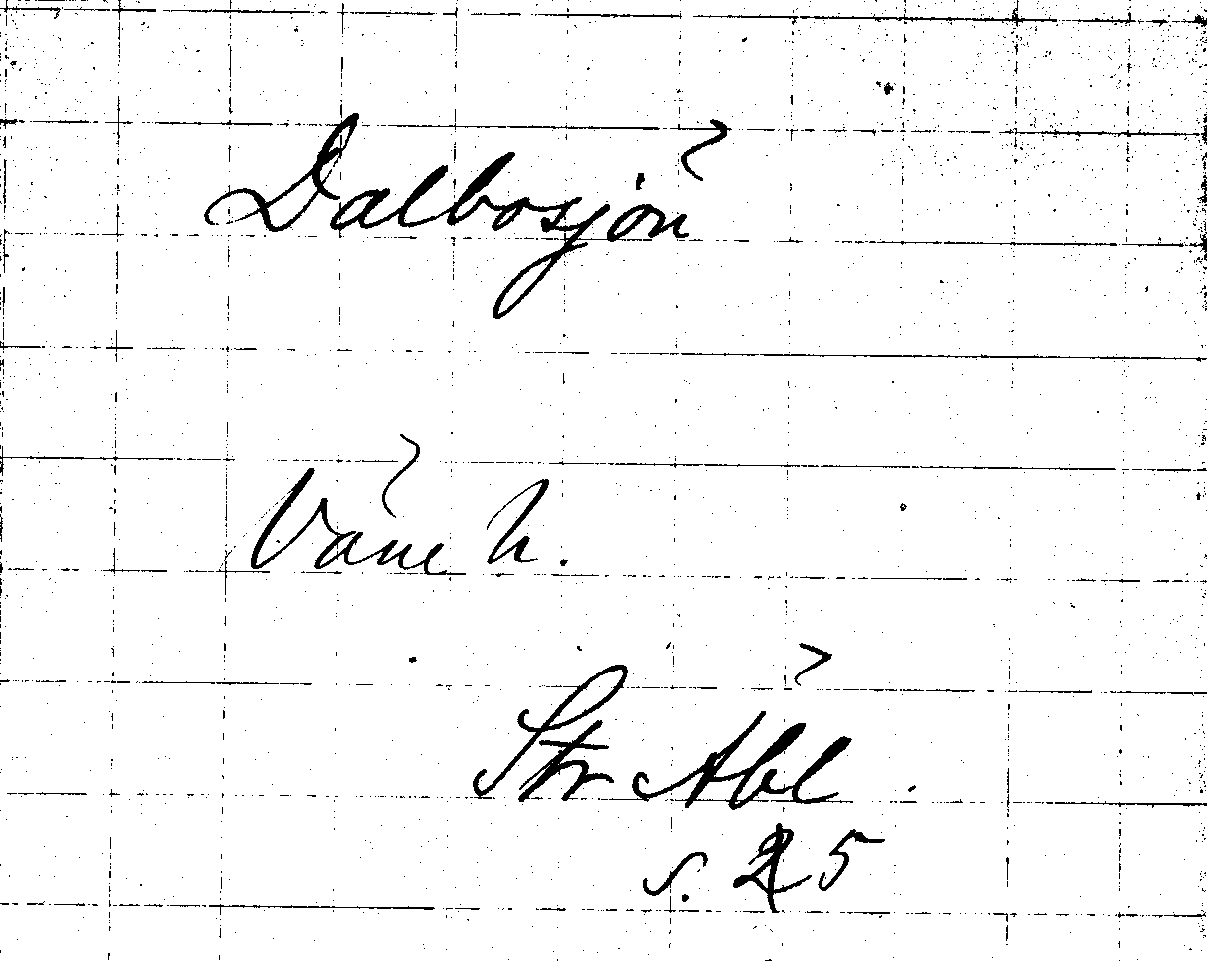 Dalbosjön
Väne h.
Str Äbl
s. 25